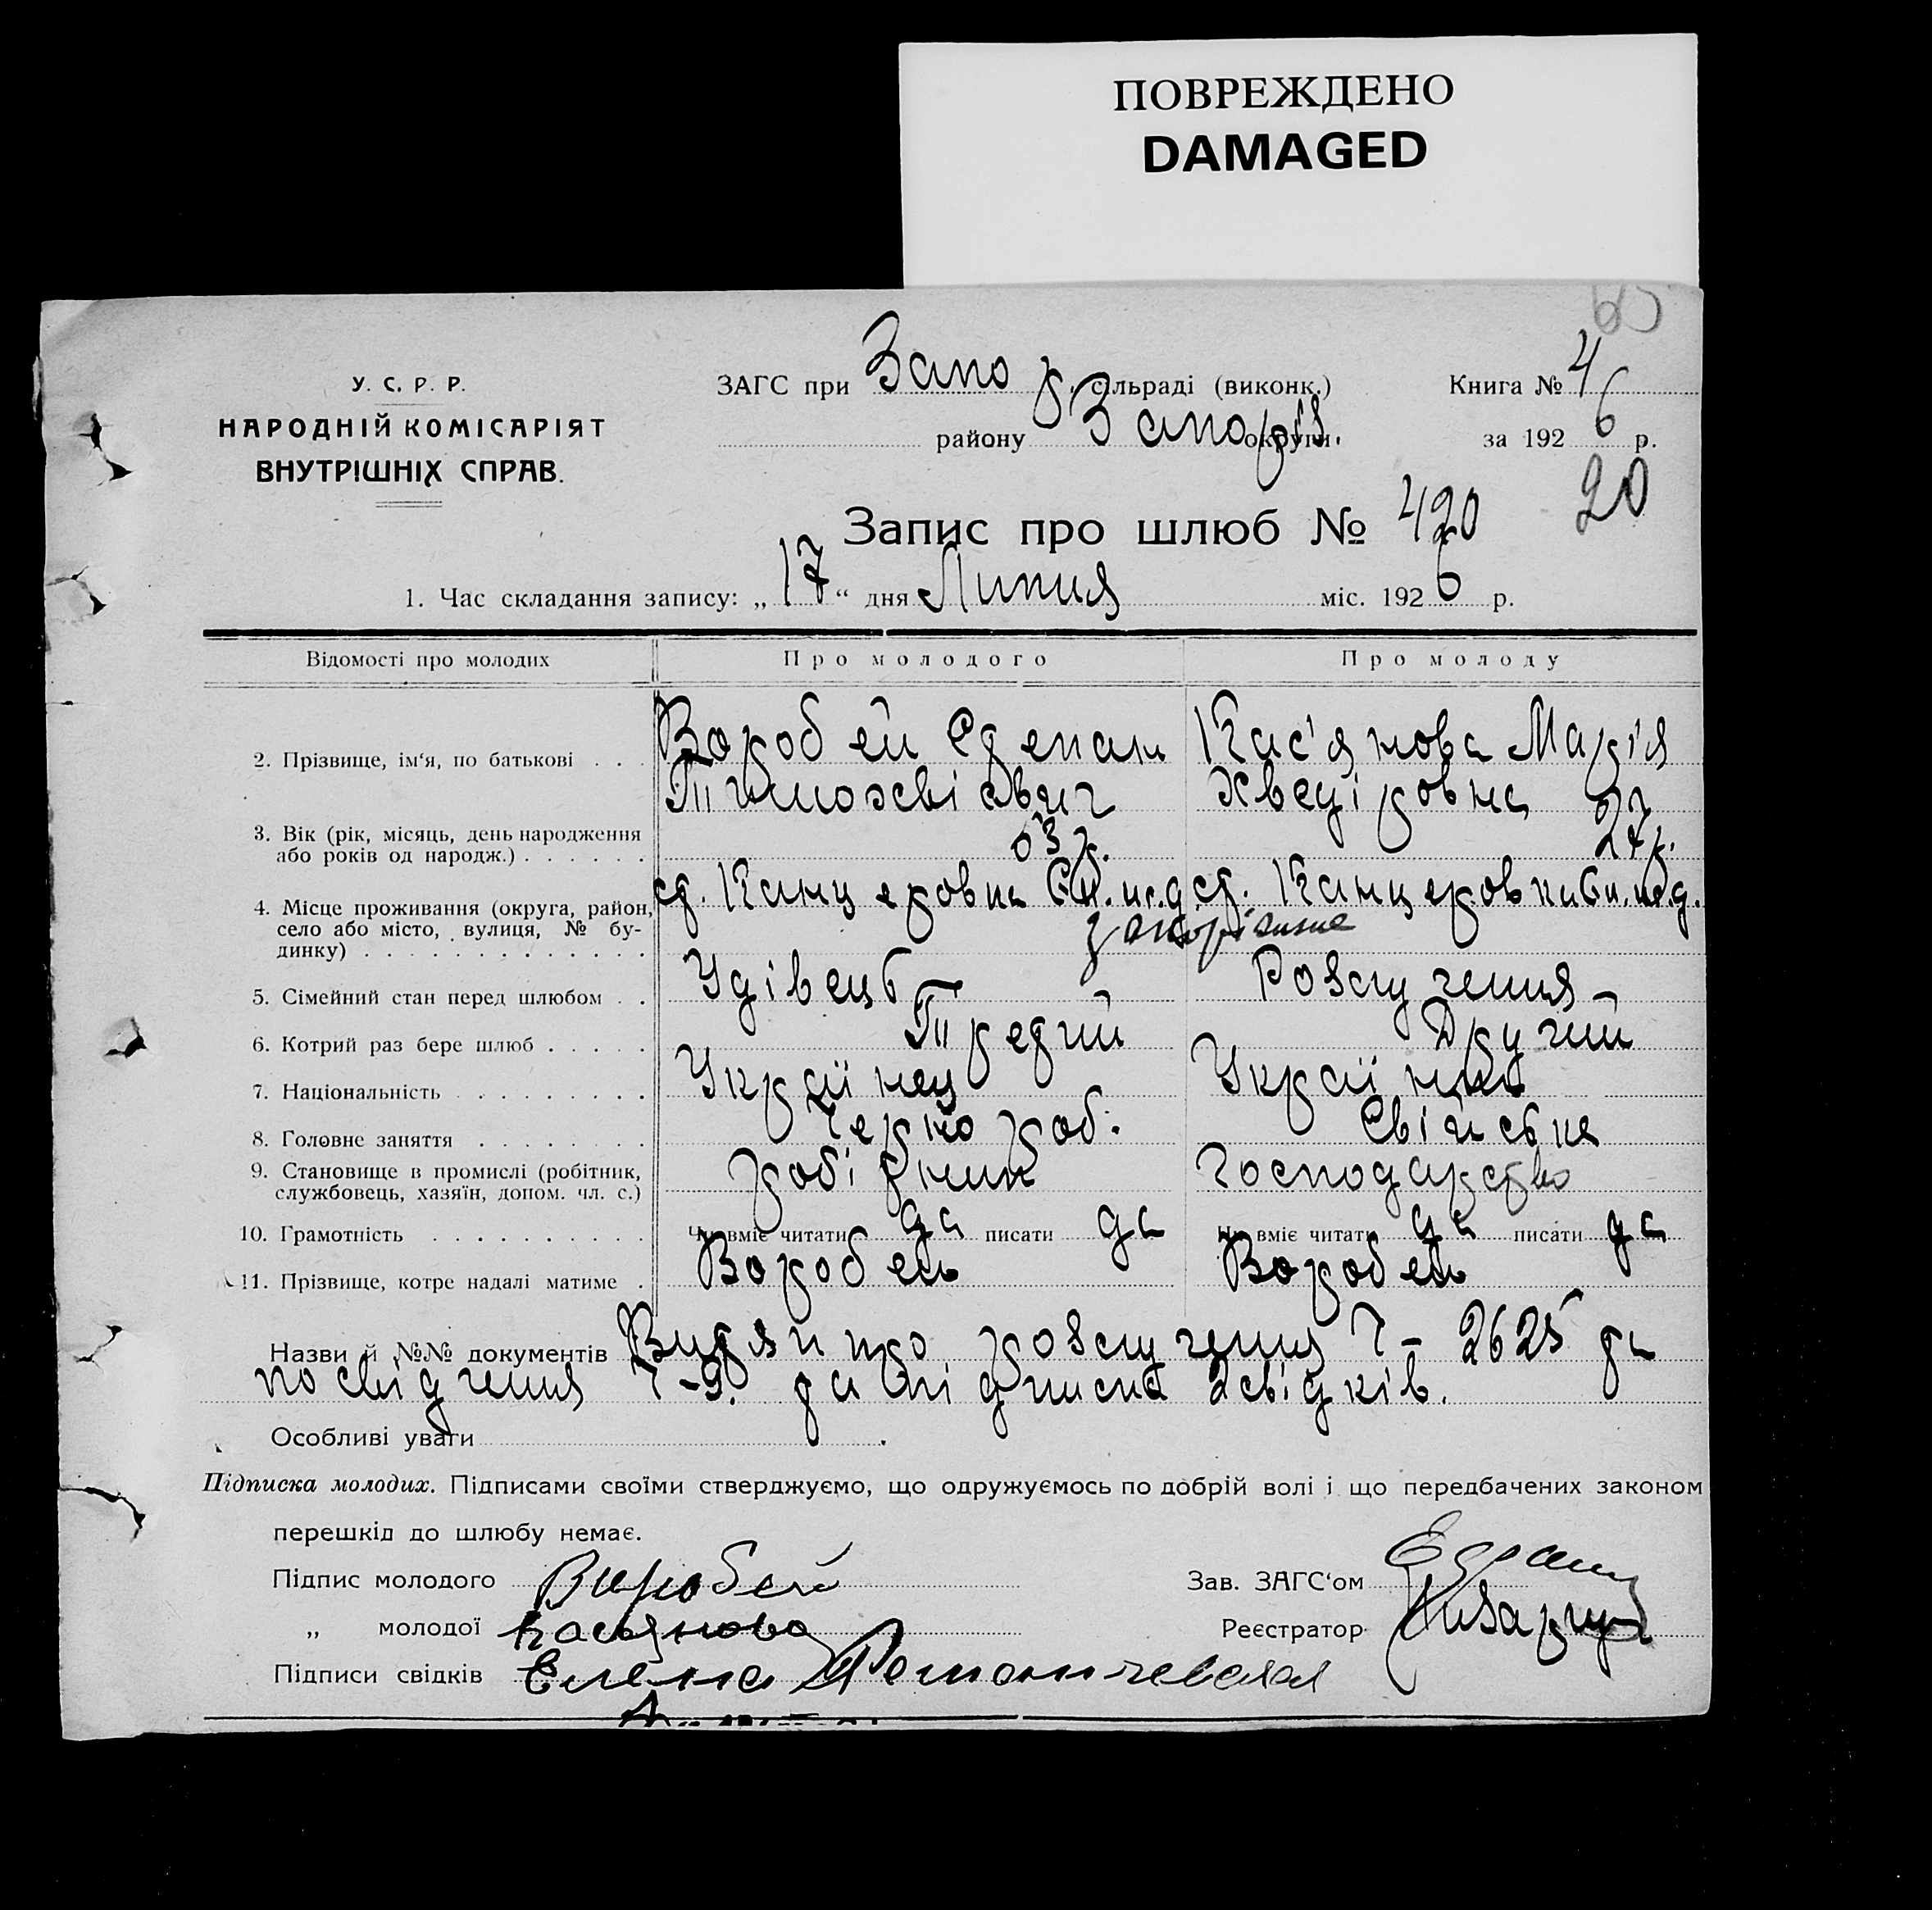 ПОВРЕЖДЕНО
DAMAGED
У. С. Р. Р.
НАРОДНІЙ КОМІСАРІЯТ
ВНУТРІШНІХ СПРАВ.
ЗАГС при Запор. сільраді (виконк.)
району Запоріз. округи.
Книга № 4
за 1926 р.
20
Запис про шлюб № 420
1. Час складання запису: „17“ дня Липня міс. 1926 р.
Відомості про молодих Про молодого Про молоду
2. Прізвище, ім‘я, по батькові . . . Воробей Степан Кас'янова Марія
Тимохвієвич Хведіровна
3. Вік (рік, місяць, день народження
або років од народж.) . . . . . . 27р.
4. Місце проживання (округа, район, ст. Канцеровка ст. Канцеровка
село або місто, вулиця, № бу-
динку) . . . . . . . . . . . . .
5. Сімейний стан перед шлюбом . . Удівець – Розлучення –
6. Котрий раз бере шлюб . . . . . Третий Другий
7. Національність . . . . . . . . . Українец Українка
8. Головне заняття . . . . . . . . Чернороб. Свійське
9. Становище в промислі (робітник, робітник господарство
службовець, хазяїн, допом. чл. с.)
10. Грамотність . . . . . . . . . . Чи вміє читати да писати да Чи вміє читати да писати да
11. Прізвище, котре надалі матиме . Воробей Воробей
Назви й №№ документів Витяг про розлучення Ч – 2625 та
посвідчення підписка 2 свідків.
Особливі уваги
Підписка молодих. Підписами своїми стверджуємо, що одружуємось по добрій волі і що передбачених законом
перешкід до шлюбу немає.
Підпис молодого Воробей
Зав. ЗАГС‘ом
„ молодої Касьянова
Реєстратор
Підписи свідків Елена